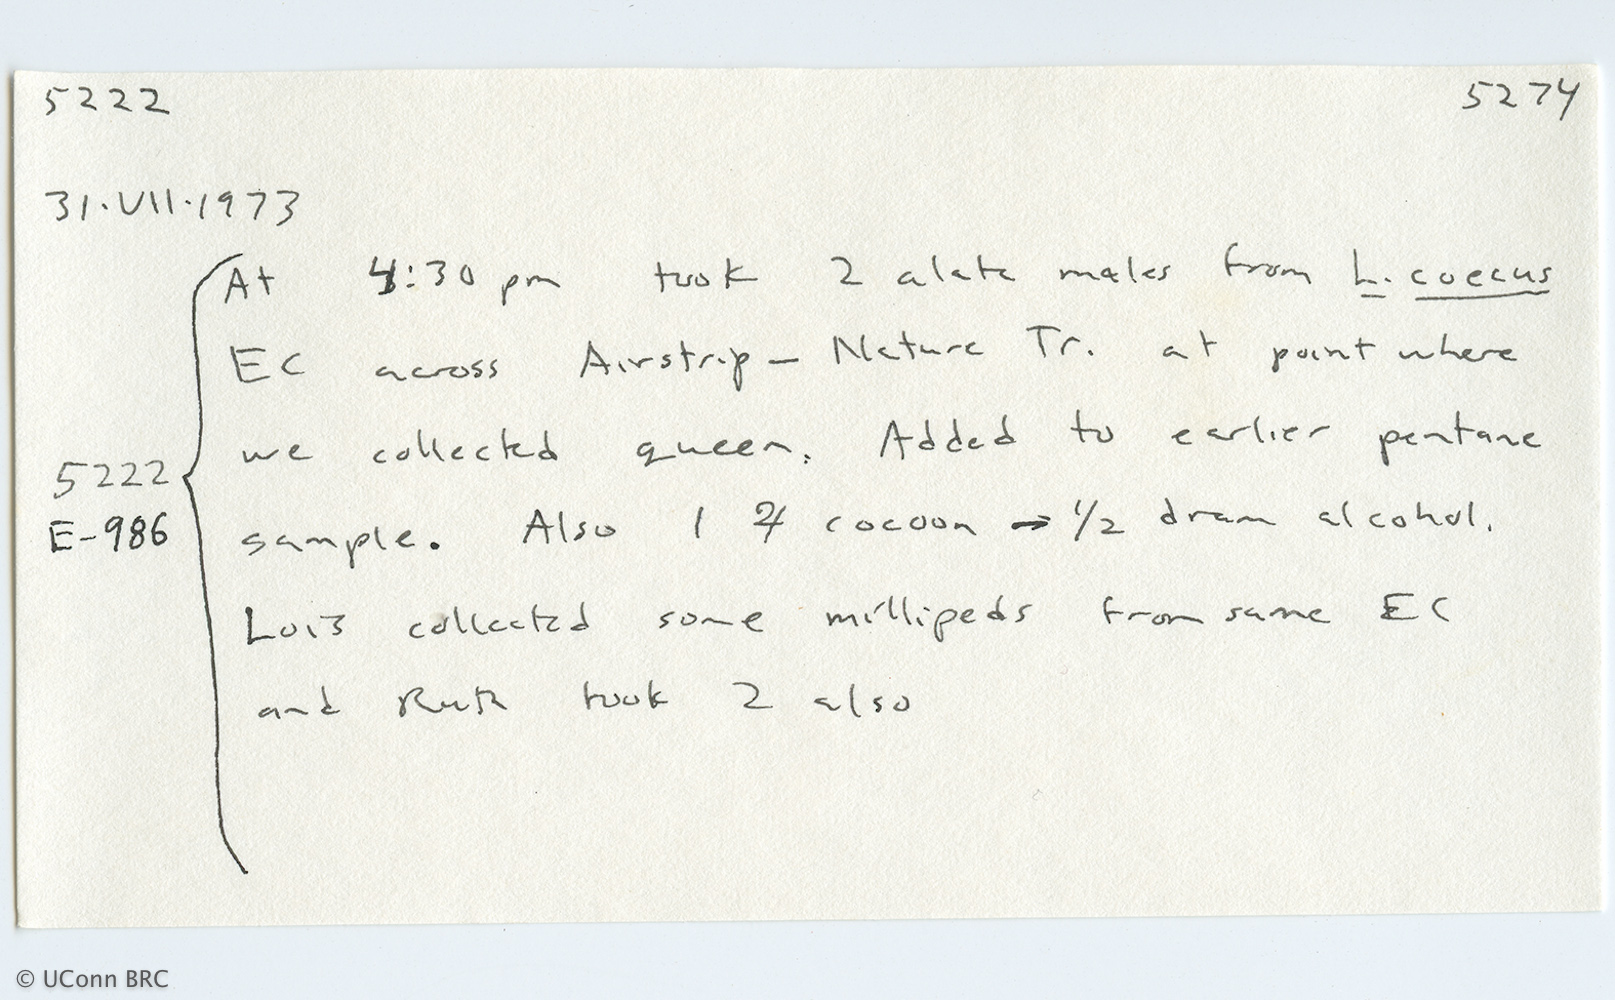 5222 5274
31·VII·1973
At 4:30 pm took 2 alate males from L. coecus
EC across Airstrip – Nature Tr. at point where
we collected queen. Added to earlier pentane
5222
E-986
sample. Also 1 cocoon → 1/2 dram alcohol.
Lois collected some millipeds from same EC
and Ruth took 2 also
© UConn BRC